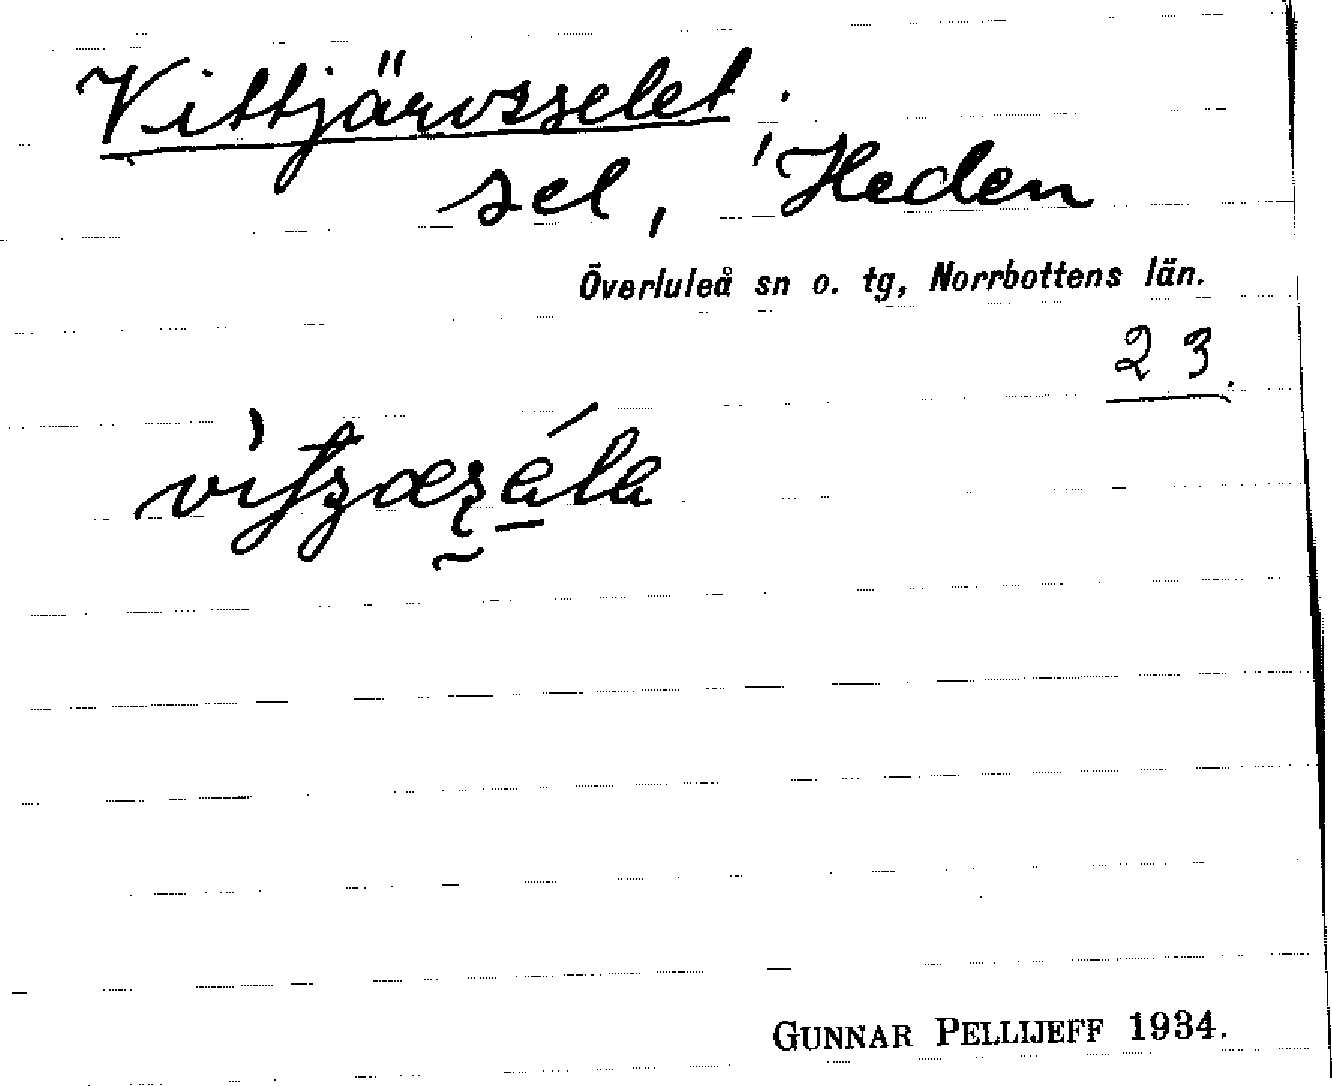 Vittjärvsselet.
sel, 'Heden
Överluleå sn o. tg, Norrbottens län.
23.
GUNNAR PELLIJEFF 1934.